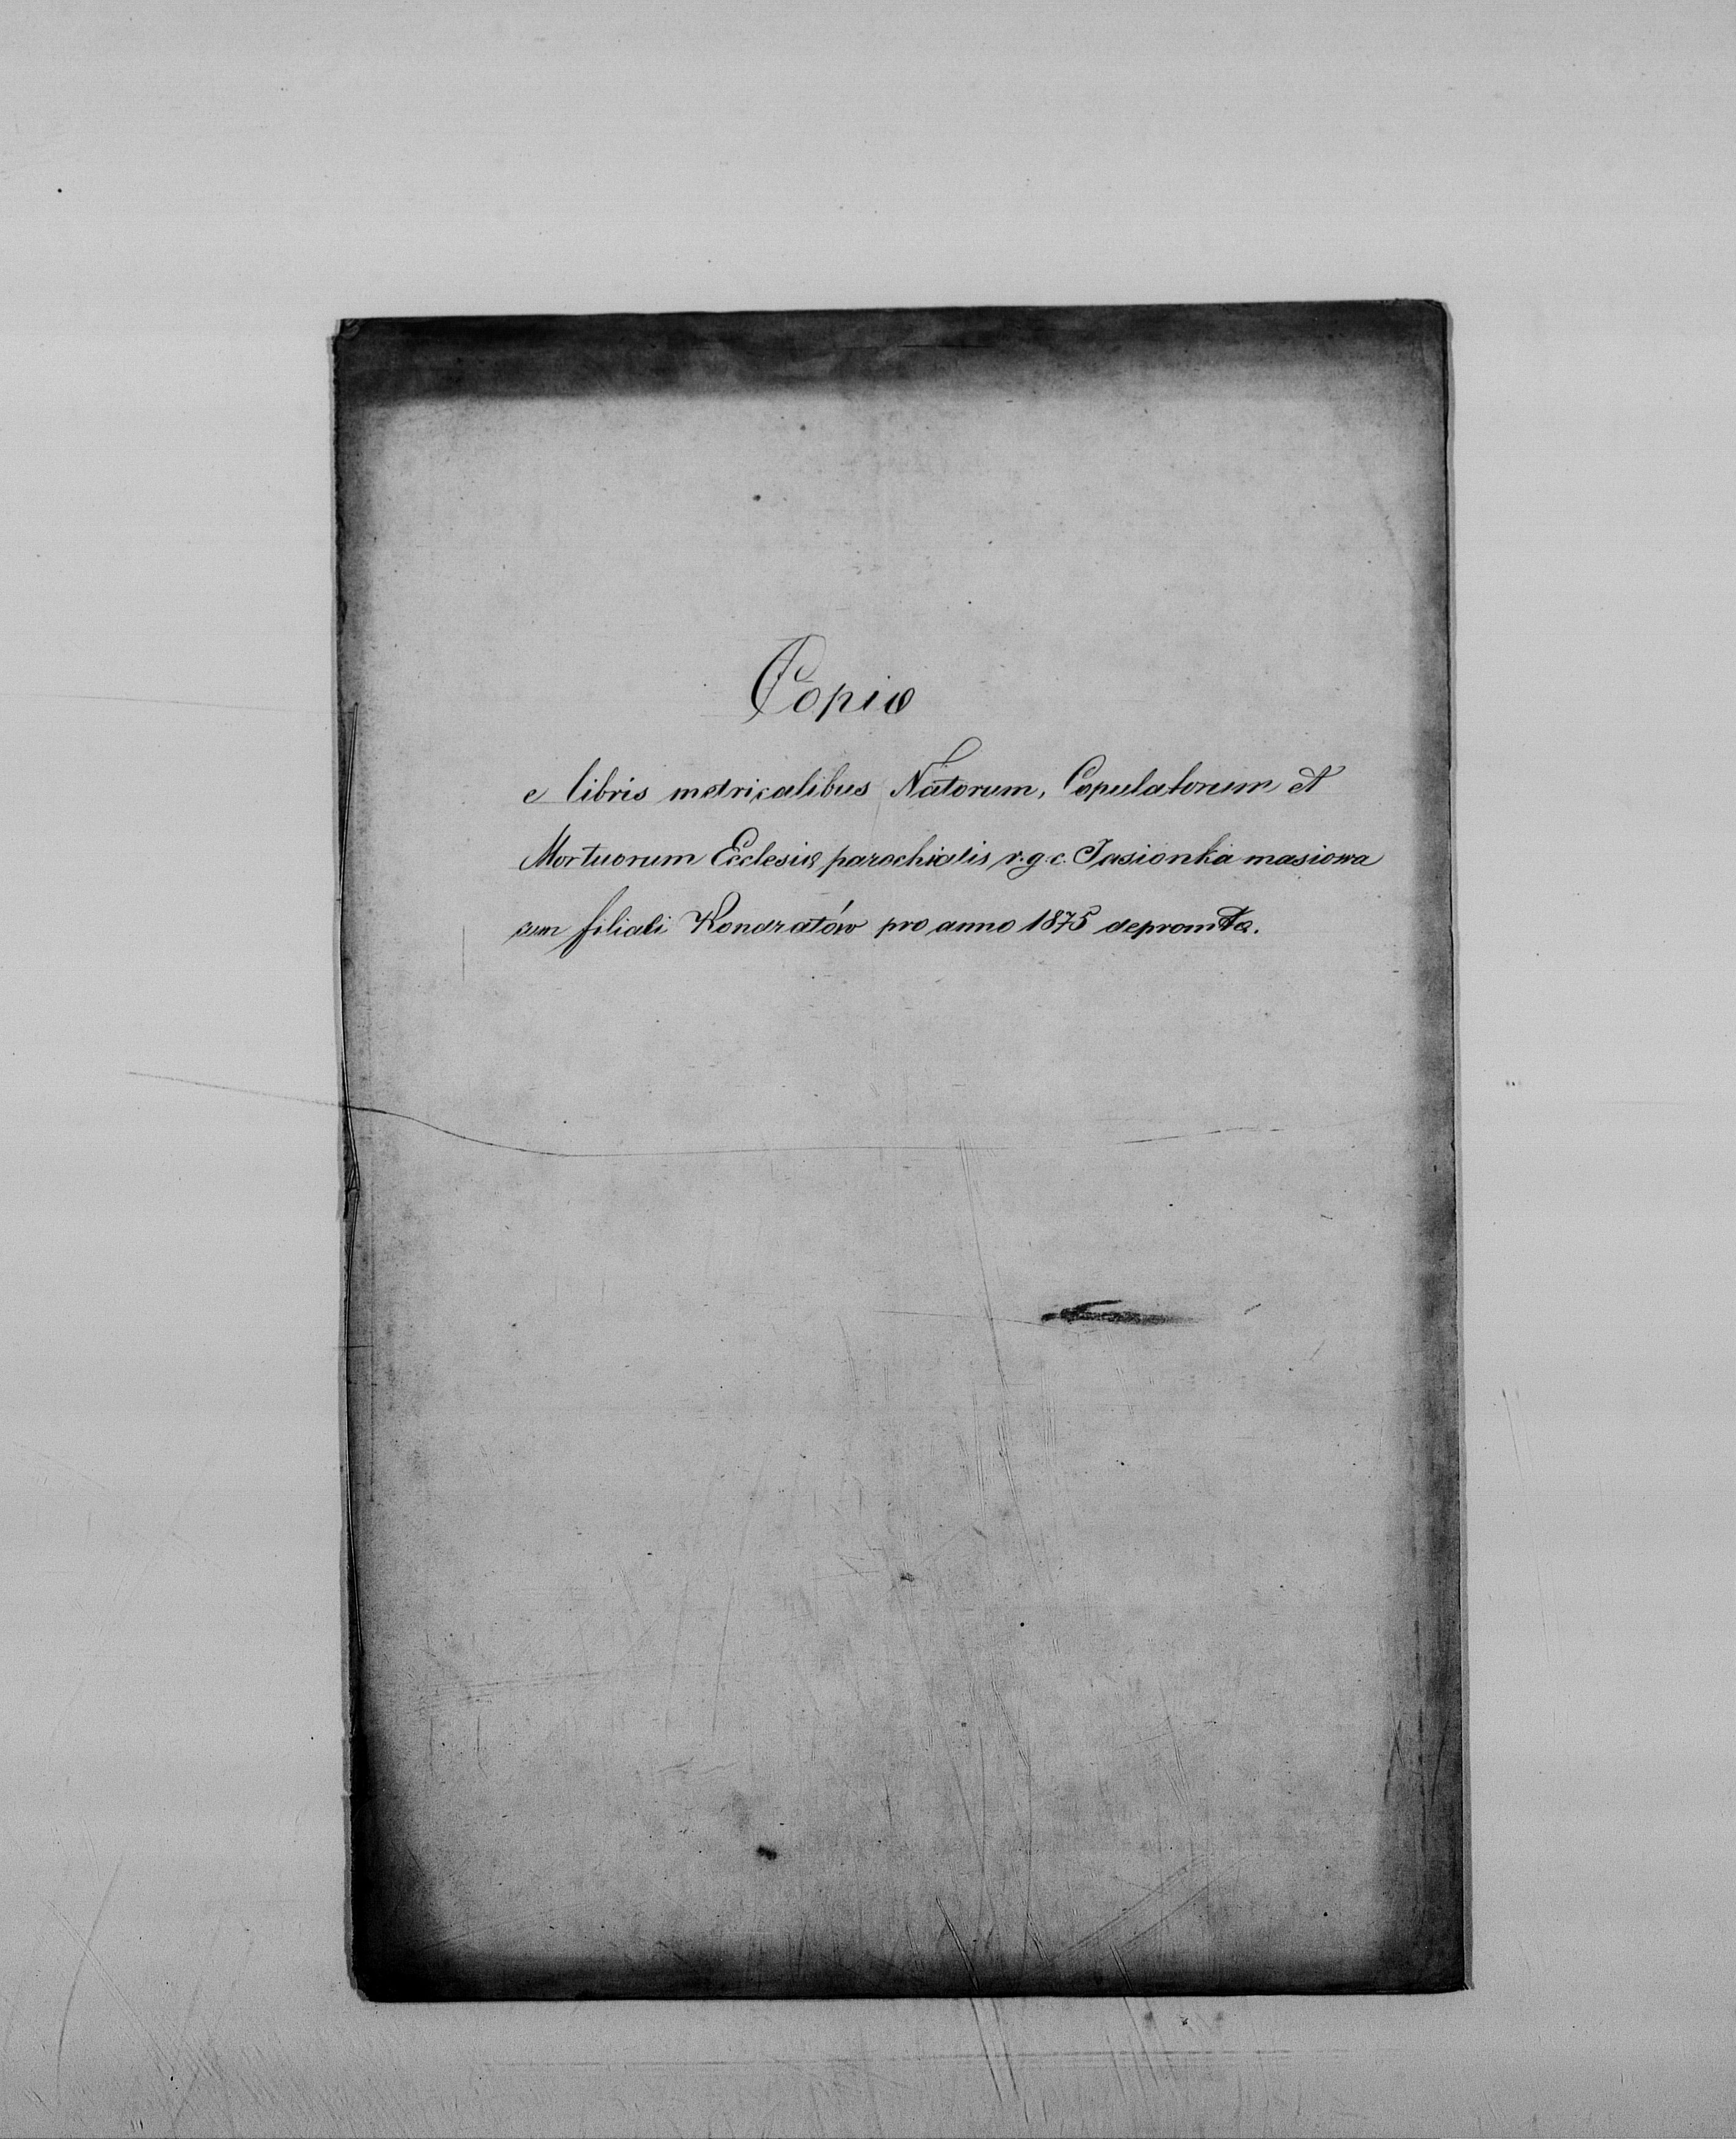 Copia
e libris metricalibus Natorum, Copulatorum et
Mortuorum Ecclesia parochialis r.g.c. Jasionka masiowa
cum filiali Kondratów pro anno 1875 depromta.